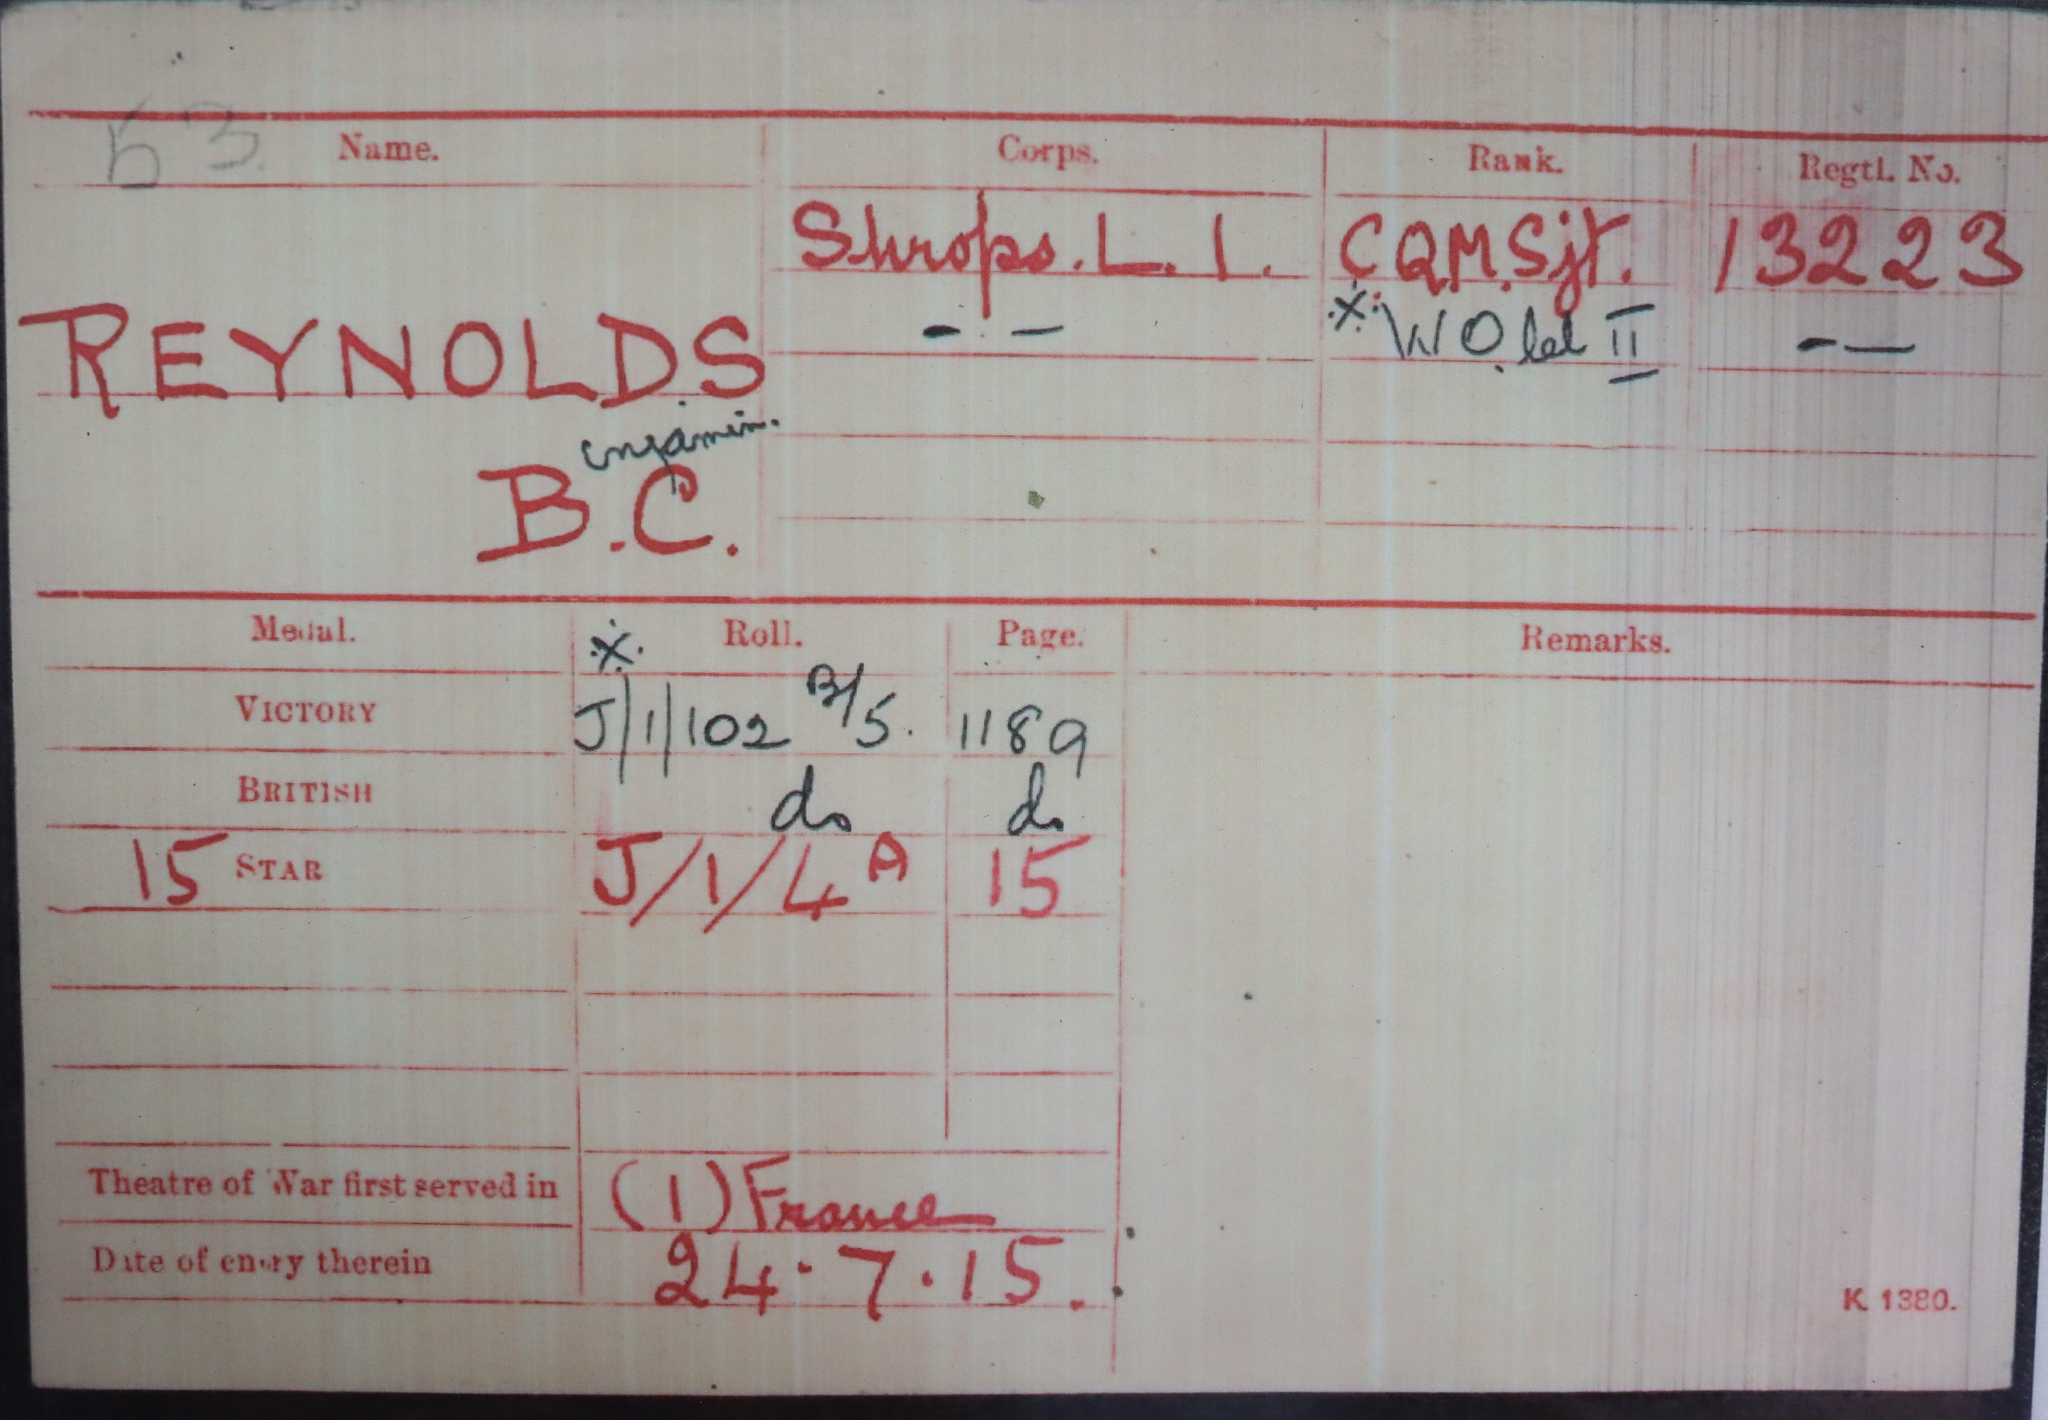 63 Name. Corps. Rank. Regtl. No.
Shrops. L. I. CQM.Sjt. 13223
REYNOLDS - - ※ W O Cl II - -
enjamin.
B.C.
Medal. ※ Roll. Page. Remarks.
VICTORY J/1/102 B/5. 1189
BRITISH do do
15 STAR J/1/4 A 15
Theatre of War first served in (1) France
Date of entry therein 24.7.15.
K 1380.